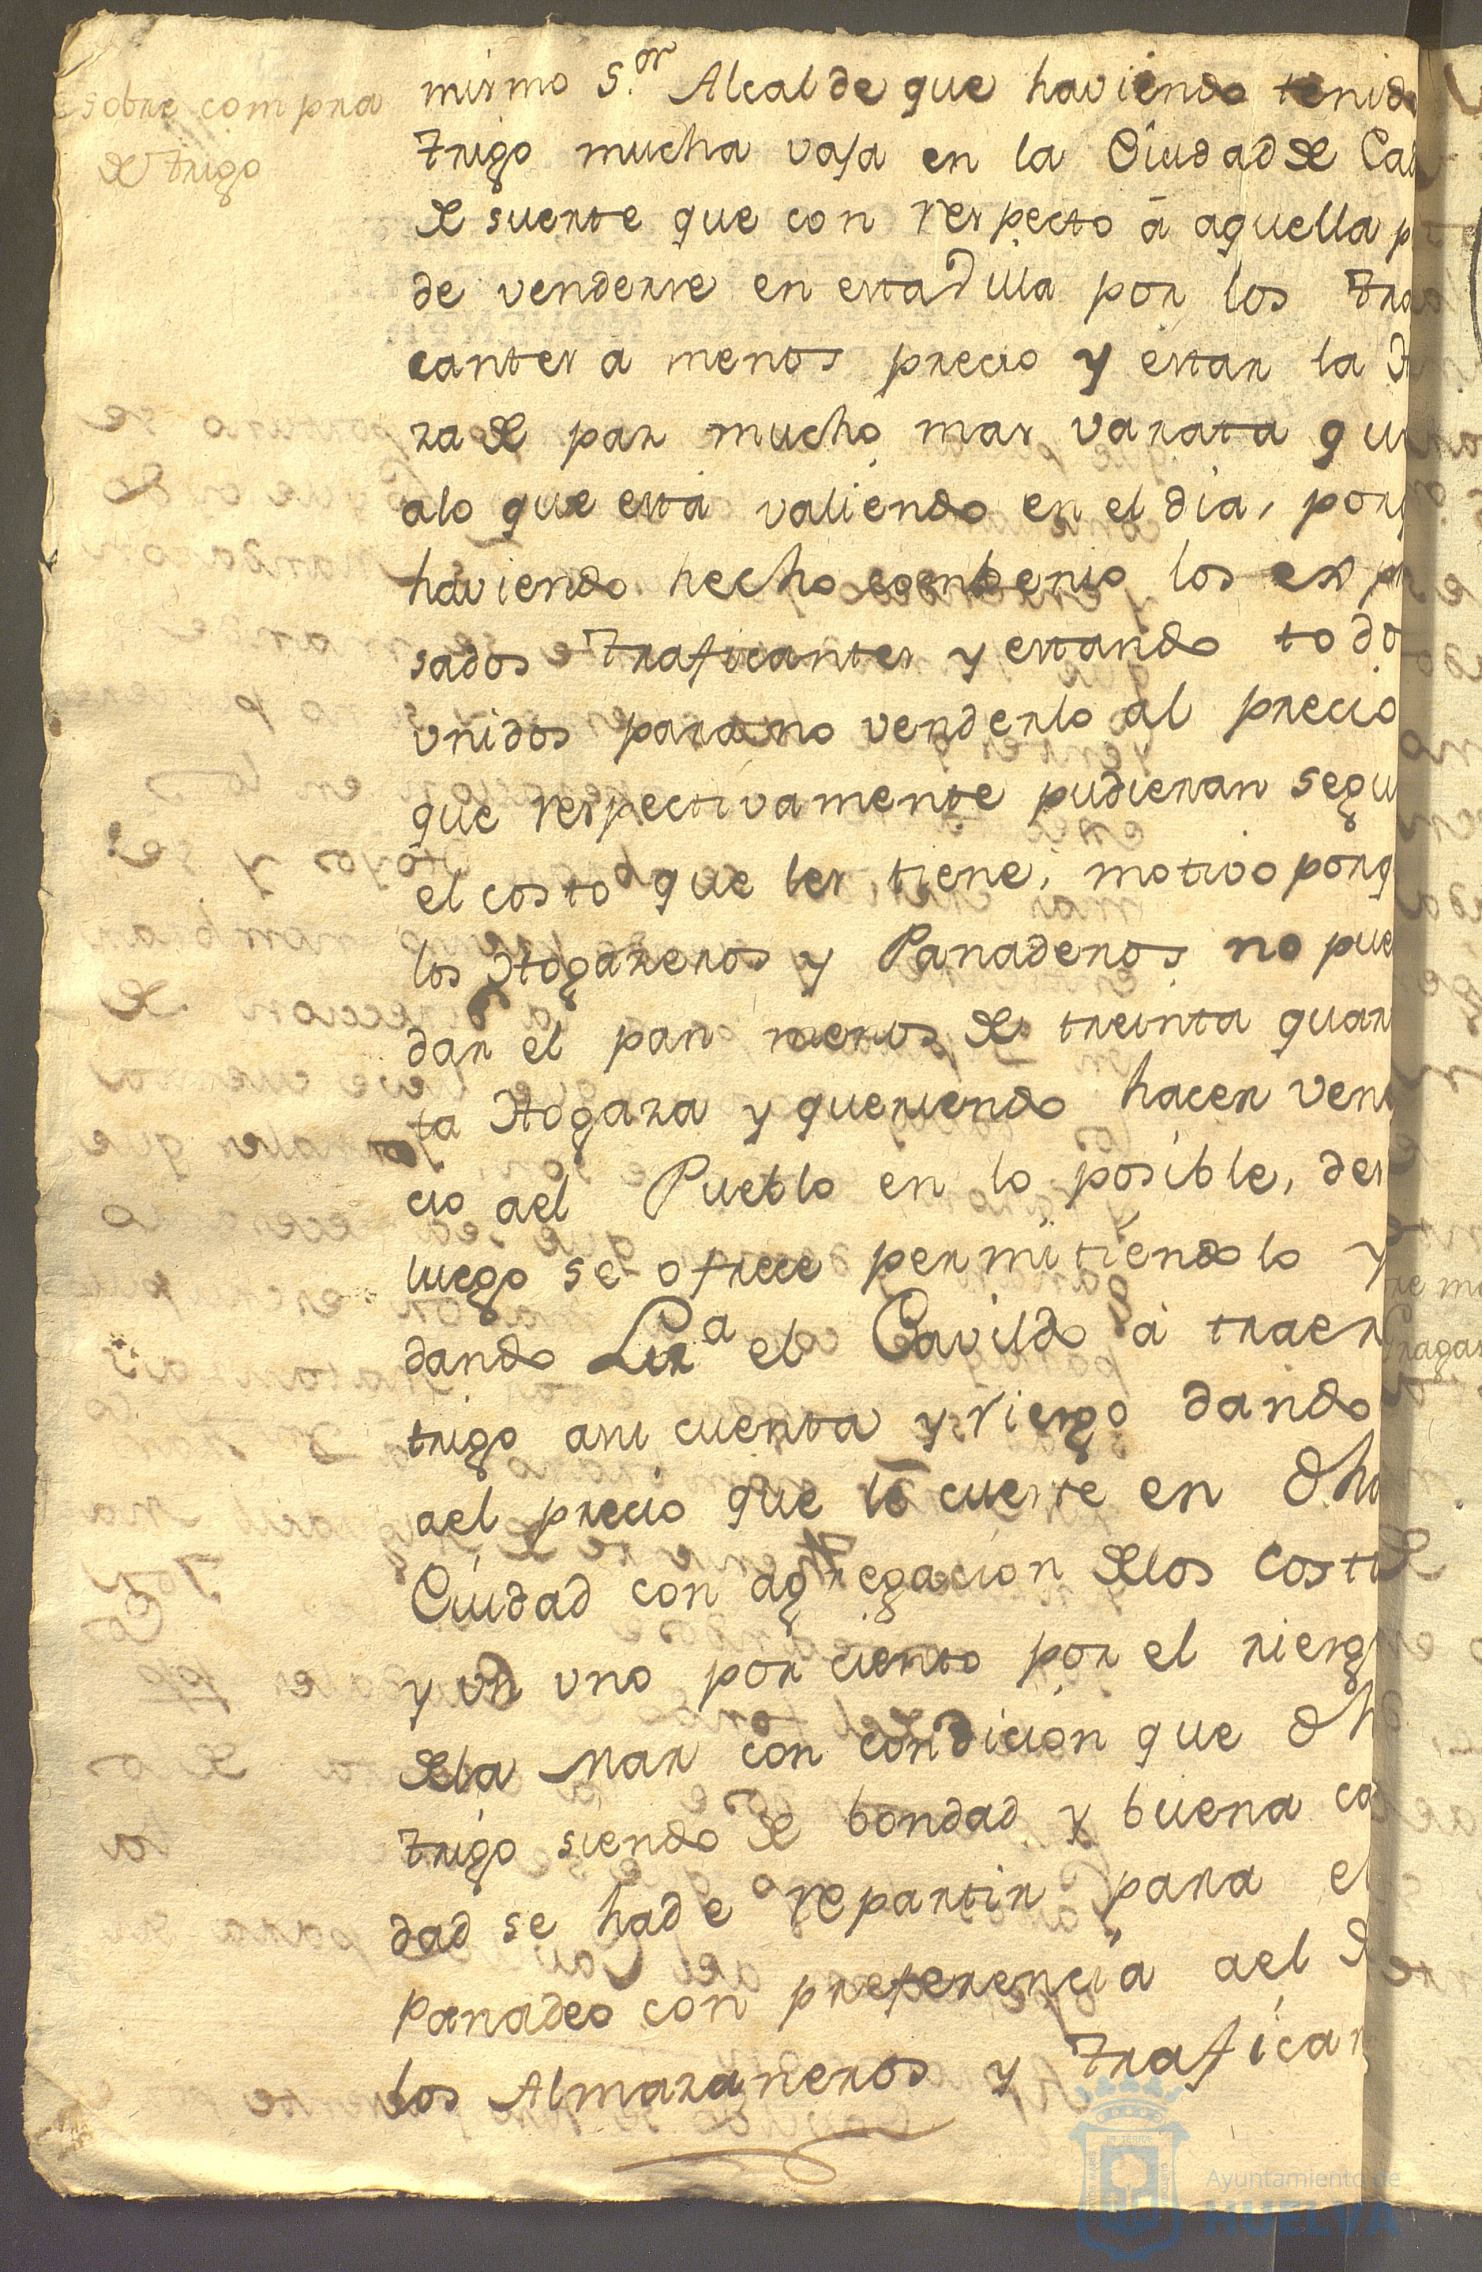 sobre compra
de trigo
mismo S.or Alcalde que haviendo tenido
trigo mucha vaja en la Ciudad de Ca
de suerte que con respecto à aquella p
de venderse en esta Villa por los tra
cantes a menos precio y estar la
ra de pan mucho mas varata qu
alo que està valiendo en el dia, porq
haviendo hecho combenio los exp
sados traficantes y estando todo
vnidos para no venderlo al precio
que respectivamente pudieran segu
el costo que les tiene, motivo porq
los Hogareros y Panaderos no pue
dar el pan menos de treinta quar
ta Hogara y queriendo hacer vene
cio ael Pueblo en lo posible, des
luego se ofrece permitiendolo y
dando Liz.a el Cavildo à traer
trigo asu cuenta y riesgo dando
ael precio que le cueste en dha
Ciudad con agregacion delos costos
y un uno por ciento por el riesg
dela mar con condicion que dh
trigo siendo de bondad y buena ca
dad se hade repartir para el
Panadeo con preferencia ael de
los Almazaneros y trafican
Ayuntamiento de
HUELVA